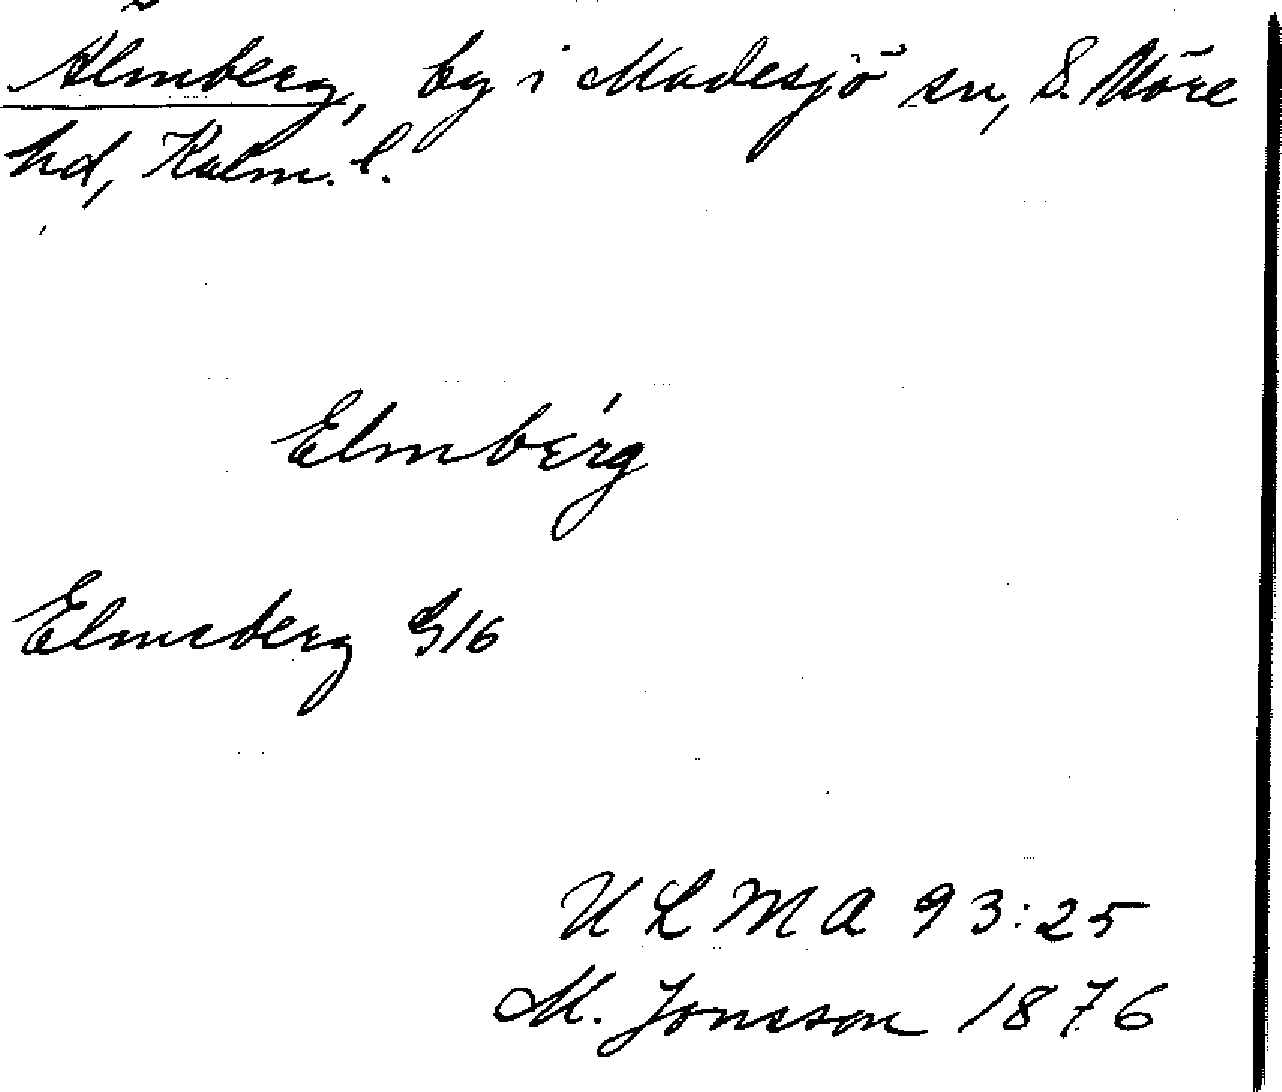 Älmberg, by i Madesjö sn, S. Möre
hd, Kalm. l.
Elmbérg
Elmeberg S16
ULMA 93:25
M. Jonsson 1876